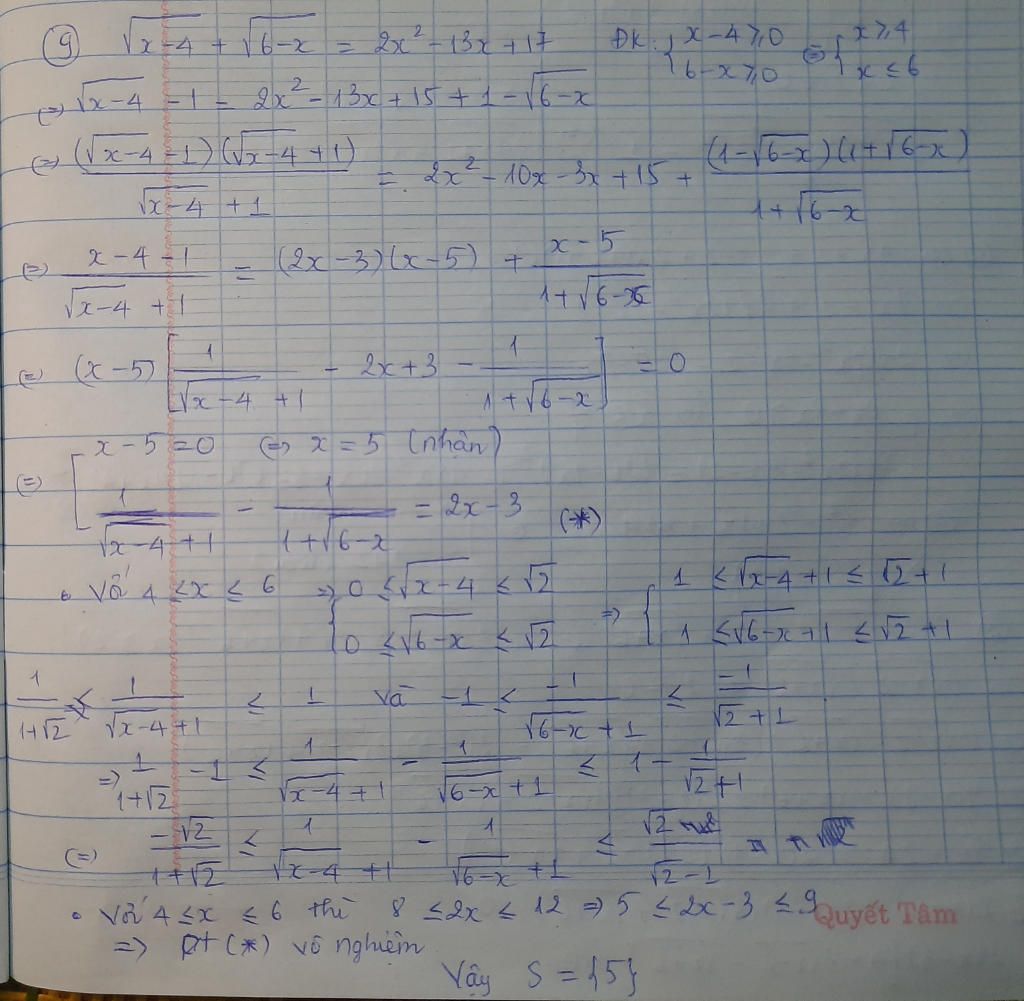 9 √(x-4) + √(6-x) = 2x² - 13x + 17 ĐK: { x-4 ≥ 0 6-x ≥ 0 ⇔ { x ≥ 4 x ≤ 6
⇔ √(x-4) - 1 = 2x² - 13x + 15 + 1 - √(6-x)
⇔ (√(x-4) - 1)(√(x-4) + 1) / (√(x-4) + 1) = 2x² - 10x - 3x + 15 + (1 - √(6-x))(1 + √(6-x)) / (1 + √(6-x))
⇔ (x-4-1) / (√(x-4) + 1) = (2x-3)(x-5) + (x-5) / (1 + √(6-x))
⇔ (x-5) [ 1/(√(x-4) + 1) - 2x + 3 - 1/(1 + √(6-x)) ] = 0
⇔ [ x-5 = 0 ⇔ x = 5 (nhận)
1/(√(x-4) + 1) - 1/(1 + √(6-x)) = 2x-3 (*)
• Với 4 ≤ x ≤ 6 ⇒ { 0 ≤ √(x-4) ≤ √2 0 ≤ √(6-x) ≤ √2 ⇒ { 1 ≤ √(x-4) + 1 ≤ √2 + 1 1 ≤ √(6-x) + 1 ≤ √2 + 1
1/(1+√2) ≤ 1/(√(x-4) + 1) ≤ 1 và -1 ≤ -1/(√(6-x) + 1) ≤ -1/(√2 + 1)
⇒ 1/(1+√2) - 1 ≤ 1/(√(x-4) + 1) - 1/(√(6-x) + 1) ≤ 1 - 1/(√2 + 1)
⇔ -√2/(1+√2) ≤ 1/(√(x-4) + 1) - 1/(√(6-x) + 1) ≤ √2/(√2 - 1)
• Với 4 ≤ x ≤ 6 thì 8 ≤ 2x ≤ 12 ⇒ 5 ≤ 2x-3 ≤ 9
Quyết Tâm
⇒ pt (*) vô nghiệm
Vậy S = {5}